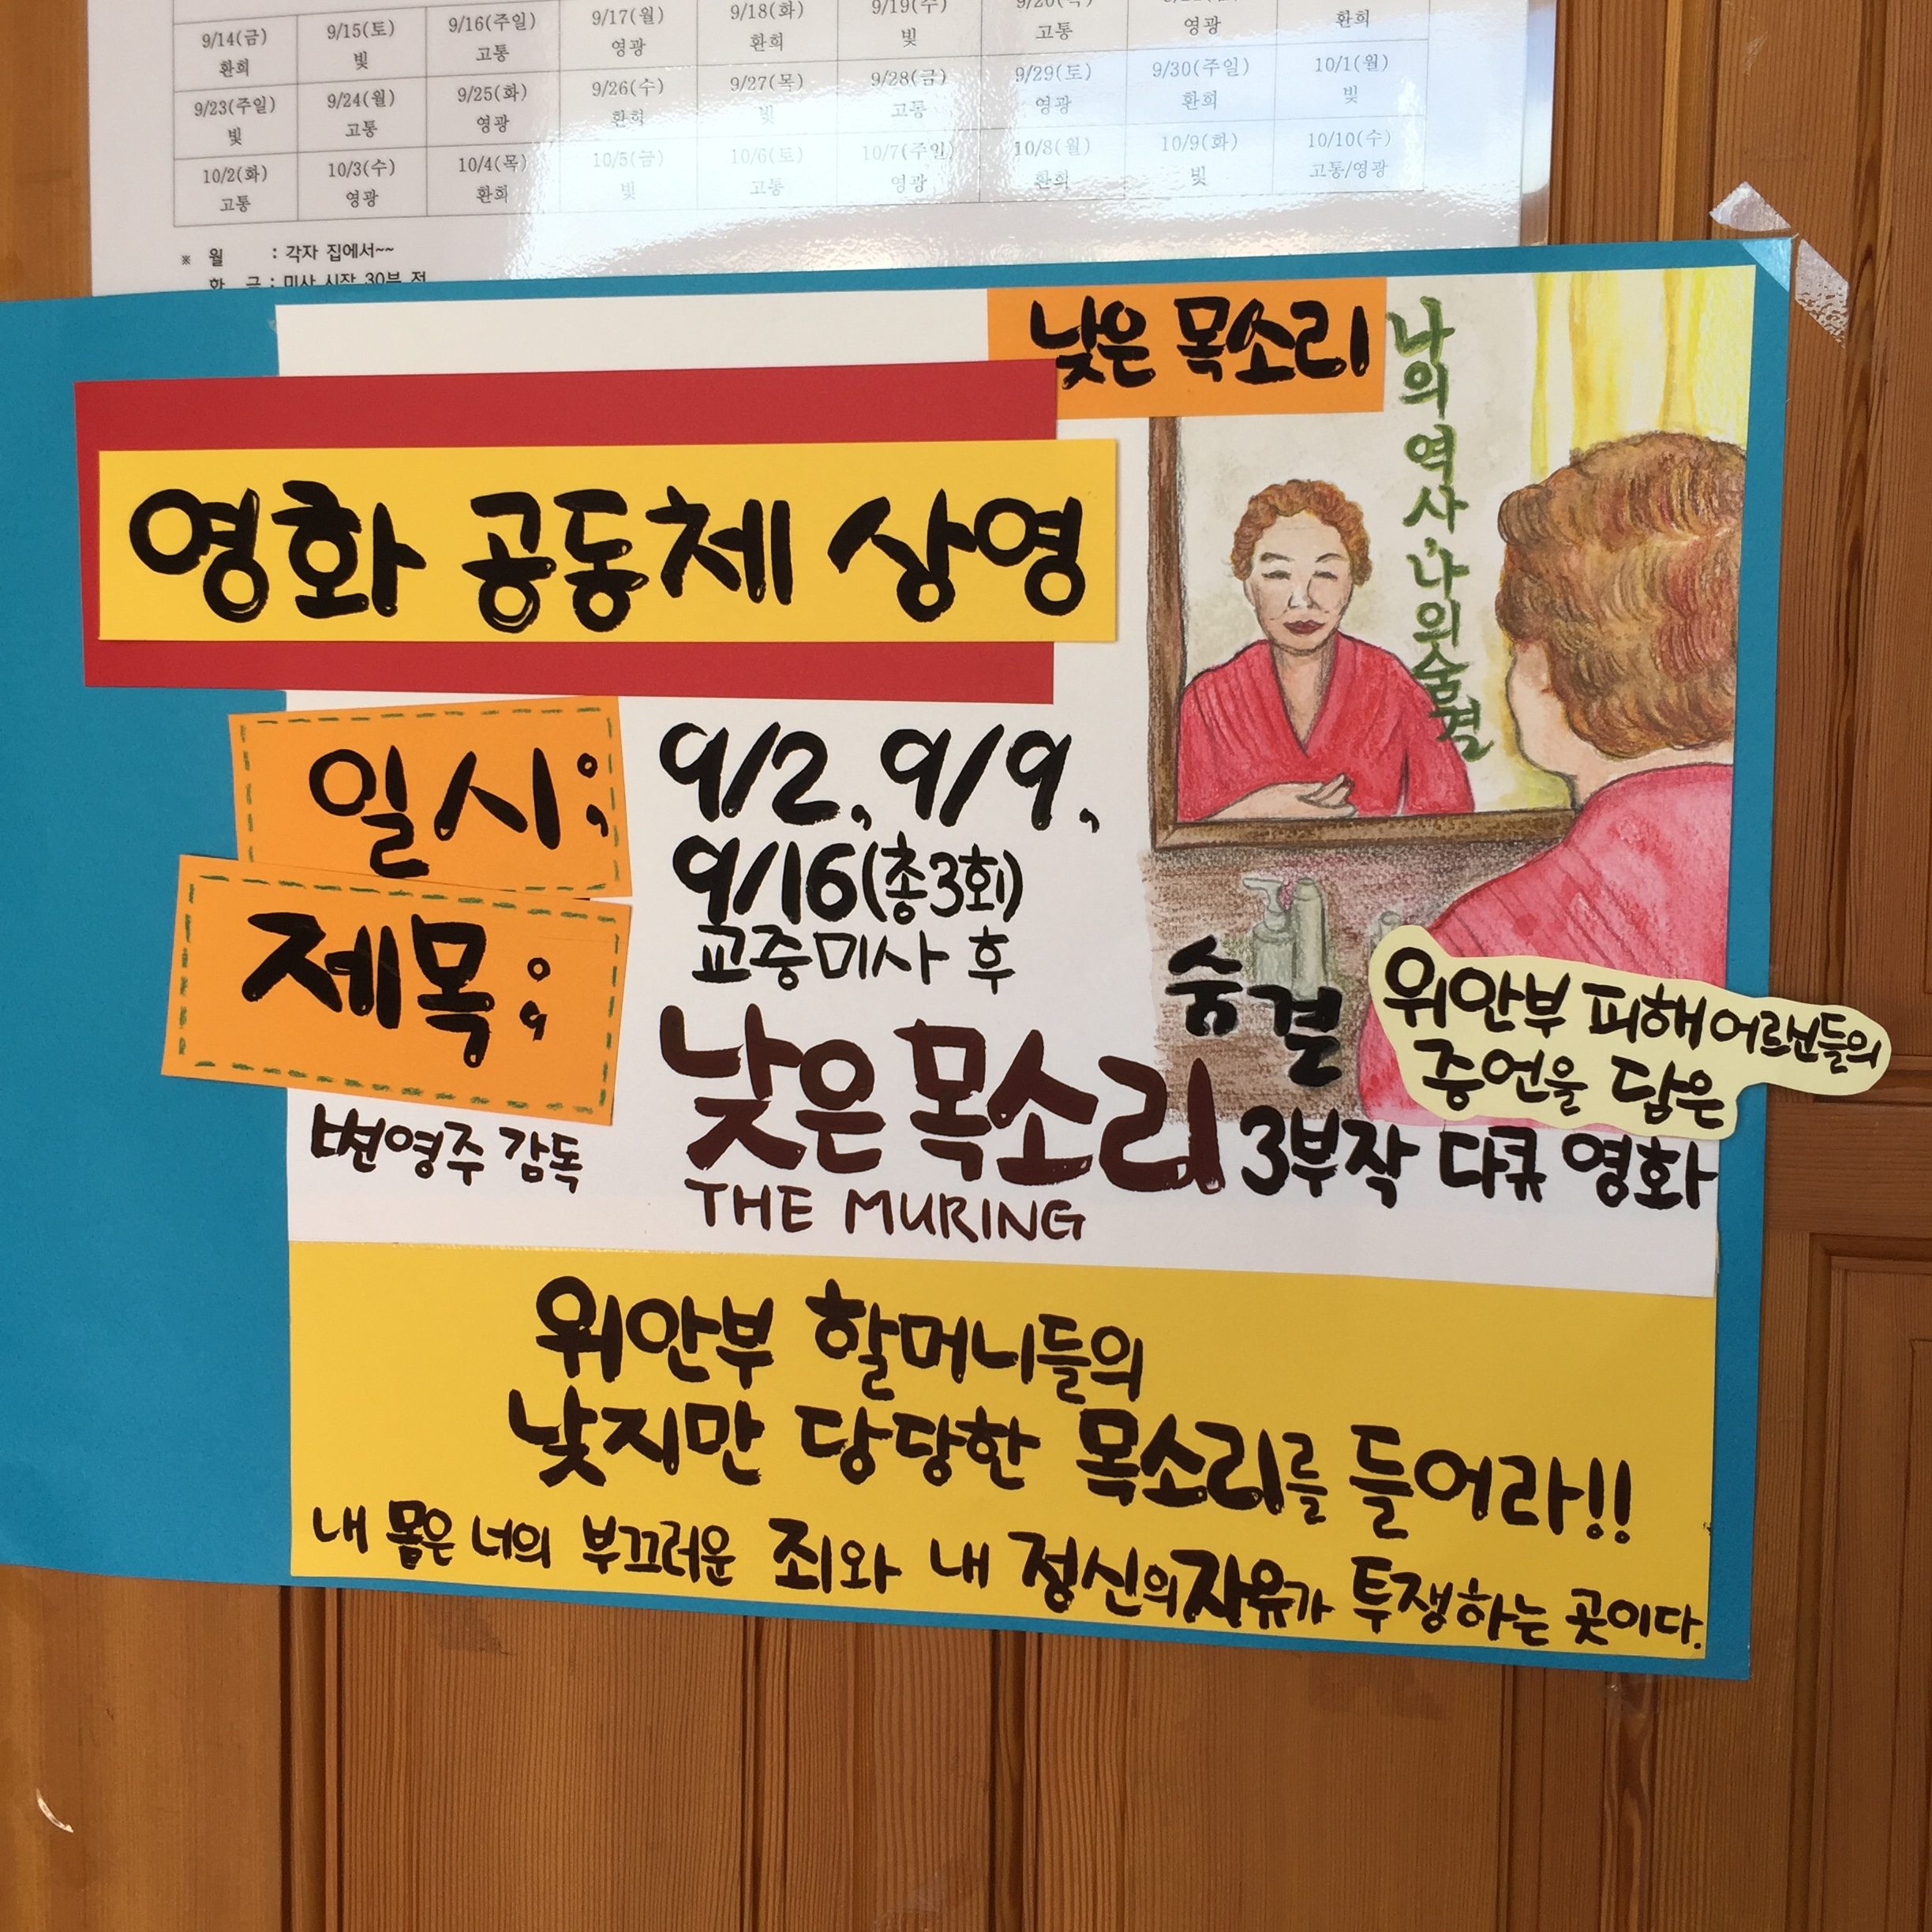 9/14(금) 9/15(토) 9/16(주일) 9/17(월) 9/18(화) 9/19(수)
환희 빛 고통 영광 환희 빛 고통 영광 환희
9/23(주일) 9/24(월) 9/25(화) 9/26(수) 9/27(목) 9/28(금) 9/29(토) 9/30(주일) 10/1(월)
빛 고통 영광 환희 빛 고통 영광 환희 빛
10/2(화) 10/3(수) 10/4(목) 10/5(금) 10/6(토) 10/7(주일) 10/8(월) 10/9(화) 10/10(수)
고통 영광 환희 빛 고통 영광 환희 빛 고통/영광
※ 월 : 각자 집에서~~
낮은 목소리
나의 역사, 나의 숨결
영화 공동체 상영
일시;
9/2, 9/9,
9/16(총3회)
교중미사 후
제목;
낮은 목소리
THE MURING
변영주 감독
숨결
위안부 피해 어르신들의
증언을 담은
3부작 다큐 영화
위안부 할머니들의
낮지만 당당한 목소리를 들어라!!
내 몸은 너의 부끄러운 죄와 내 정신의 자유가 투쟁하는 곳이다.